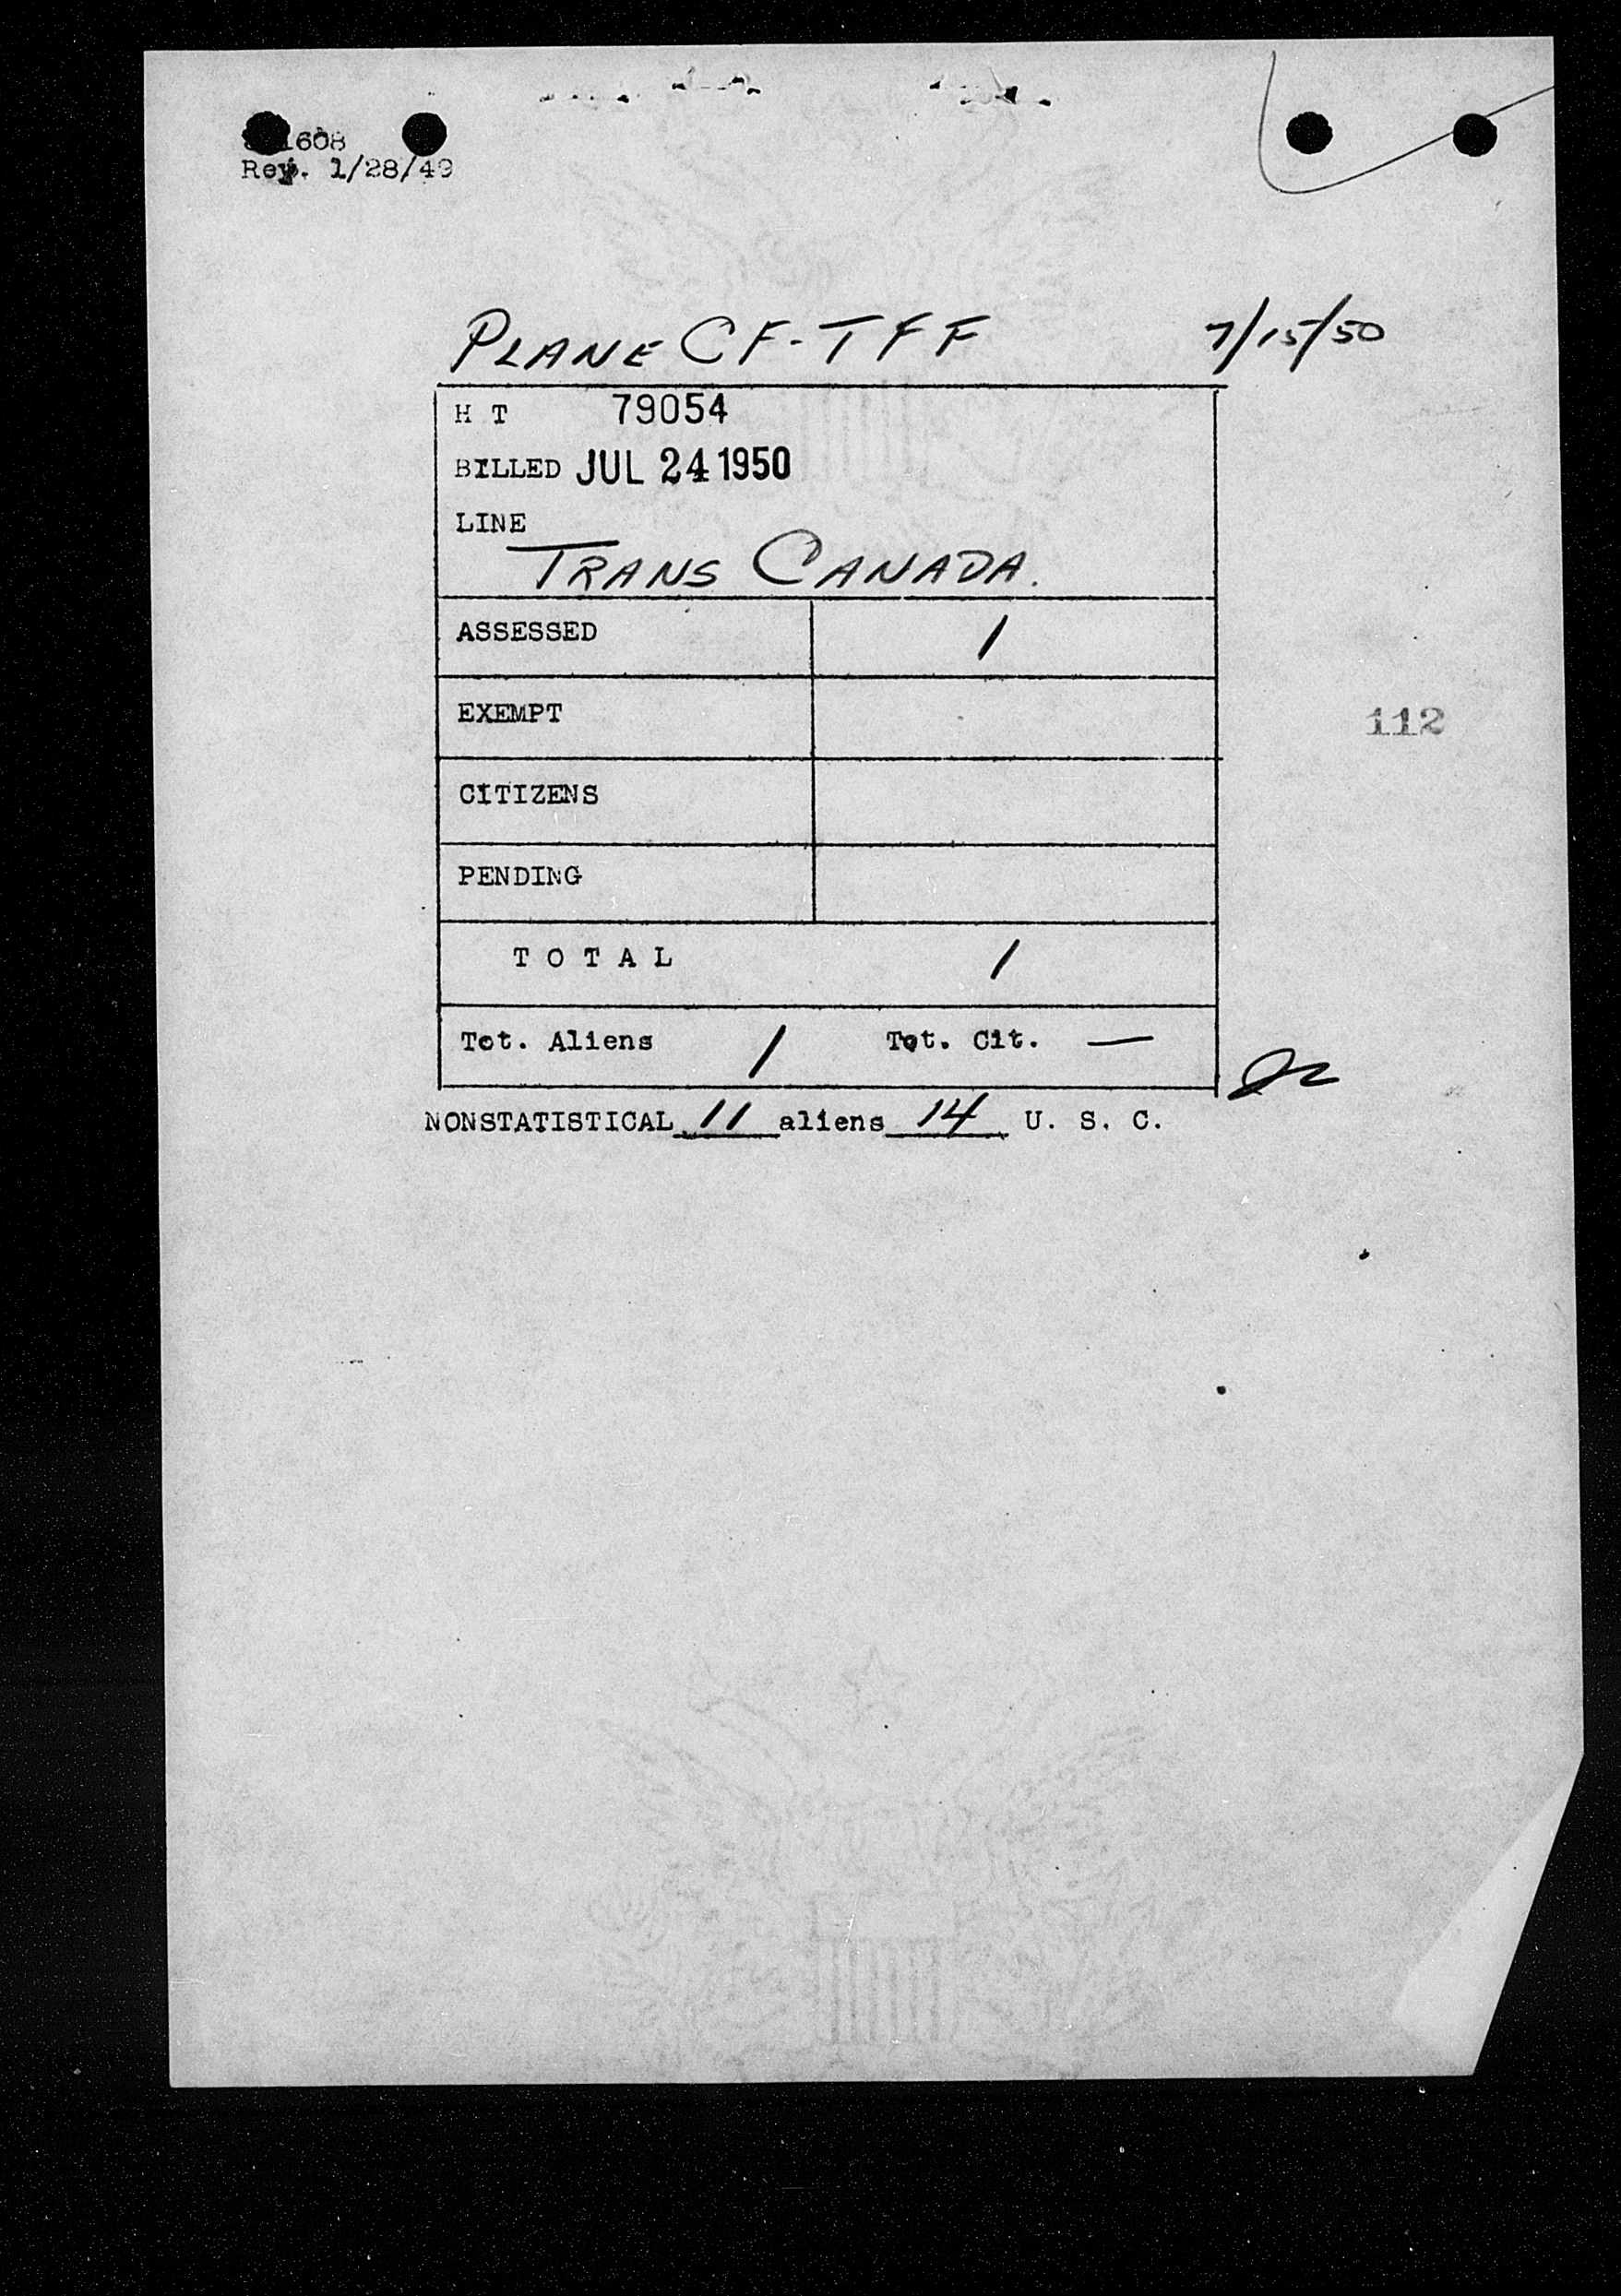 1608
Rev. 1/28/49
PLANE CF-TFF 7/15/50
H T 79054
BILLED JUL 24 1950
LINE
TRANS CANADA.
ASSESSED 1
EXEMPT
CITIZENS
PENDING
T O T A L 1
Tot. Aliens 1 Tot. Cit. —
NONSTATISTICAL 11 aliens 14 U. S. C.
112